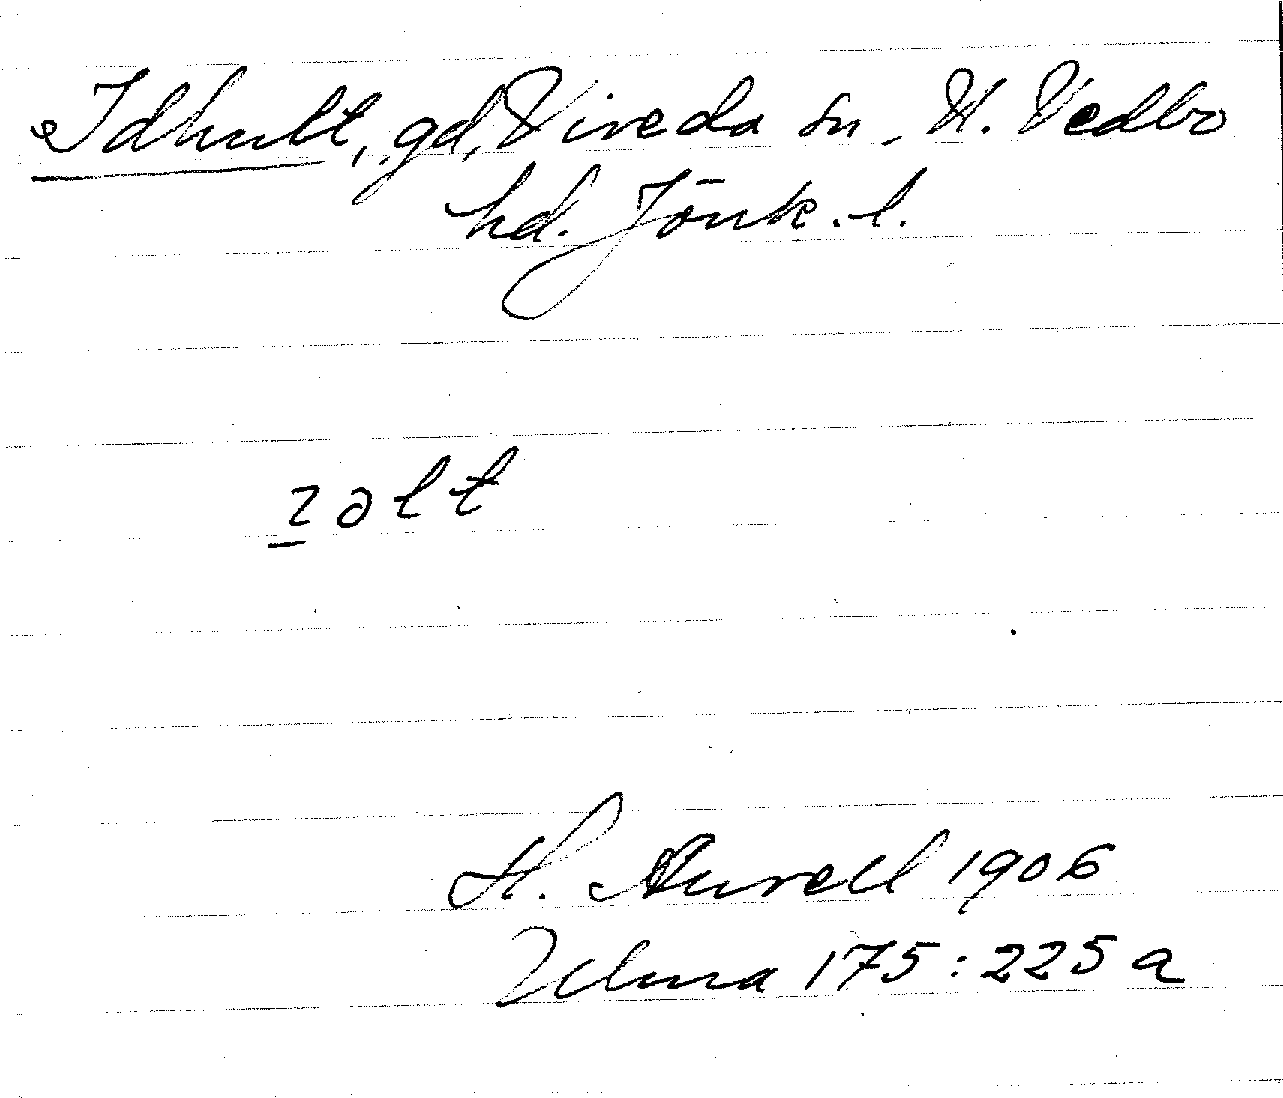 Idhult, gd, Vireda sn, N. Vedbo
hd. Jönk. l.
ɿəlt
H. Aurell 1906
Ulma 175:225 a